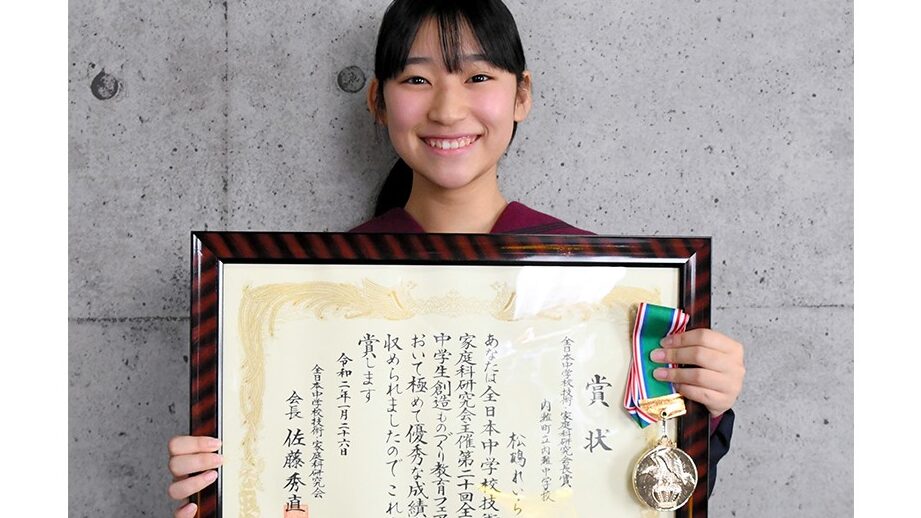 賞状
全日本中学校技術・家庭科研究会長賞
内灘町立内灘中学校
松鶴れいら
あなたは全日本中学校技術
家庭科研究会主催第二十回全
中学生創造ものづくり教育フェア
おいて極めて優秀な成績
収められましたのでこれ
賞します
令和二年一月二十六日
全日本中学校技術・家庭科研究会
会長 佐藤秀直